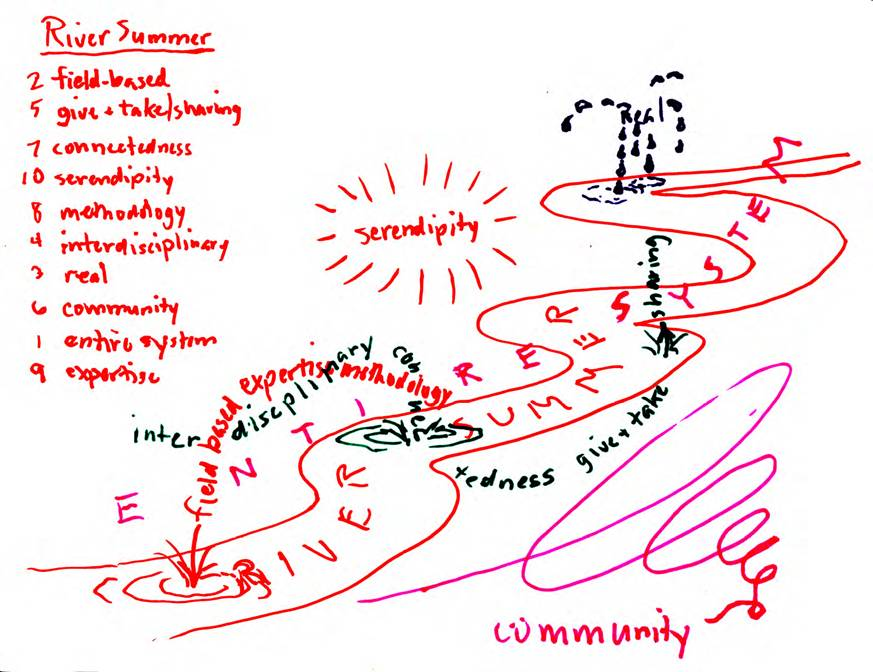 River Summer
2 field-based
5 give + take/sharing
7 connectedness
10 serendipity
8 methodology
4 interdisciplinary
3 real
6 community
1 entire system
9 expertise
Real
serendipity
ENTIRE SYSTEM
RIVER SUMMER
field based expertise methodology
inter disciplinary
con nec tedness
give + take
sharing
community